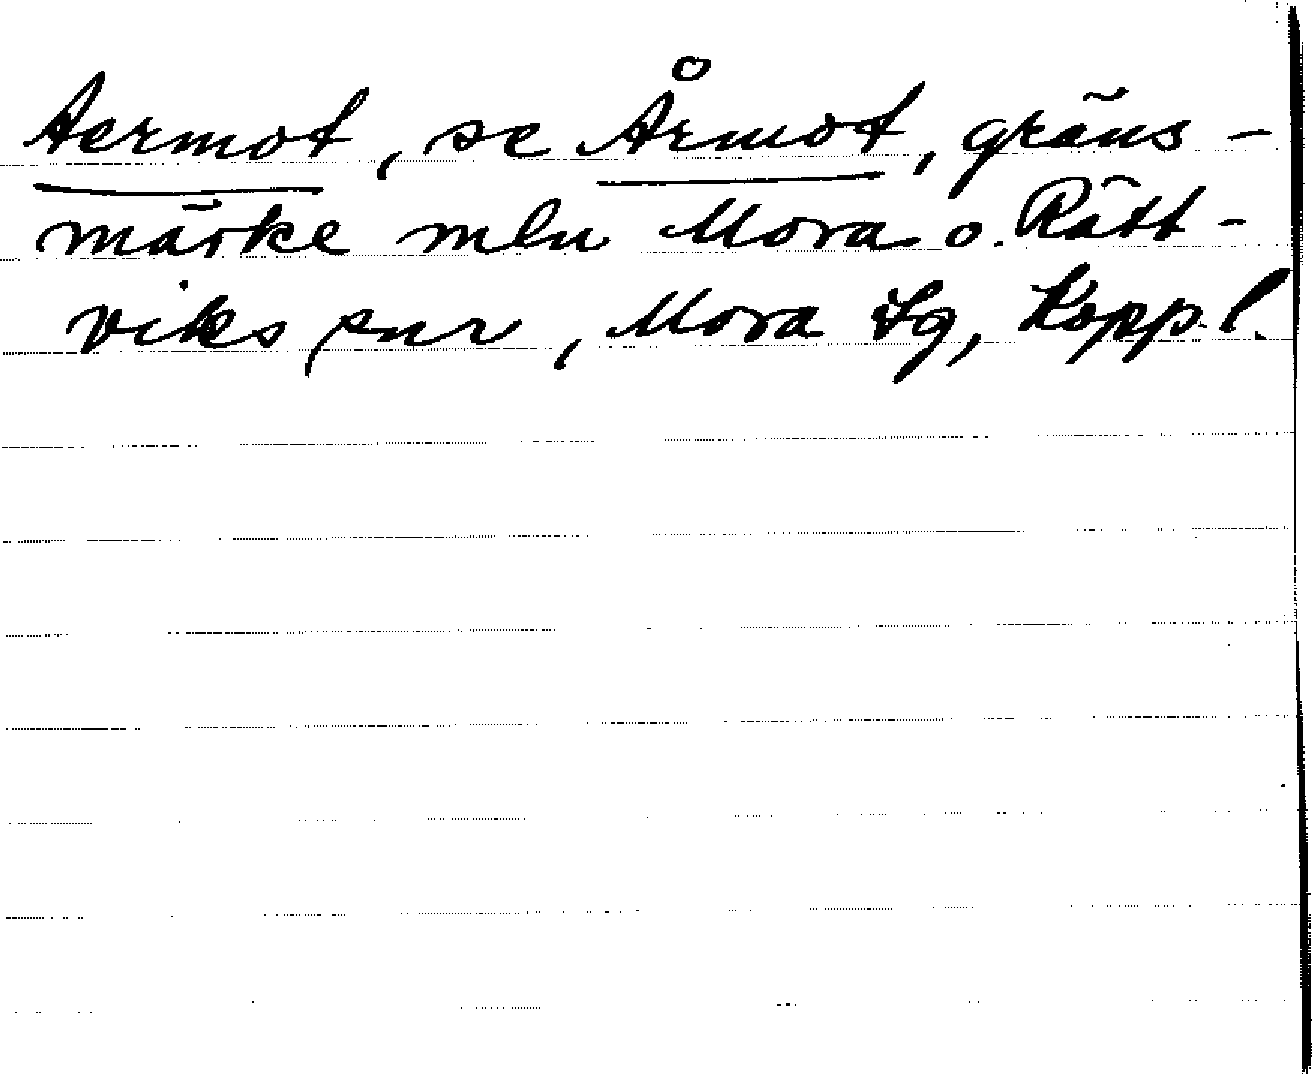 Aermot, se Årmot, gräns-
märke mln Mora o. Rätt-
viks snr, Mora sg, Kopp. l.